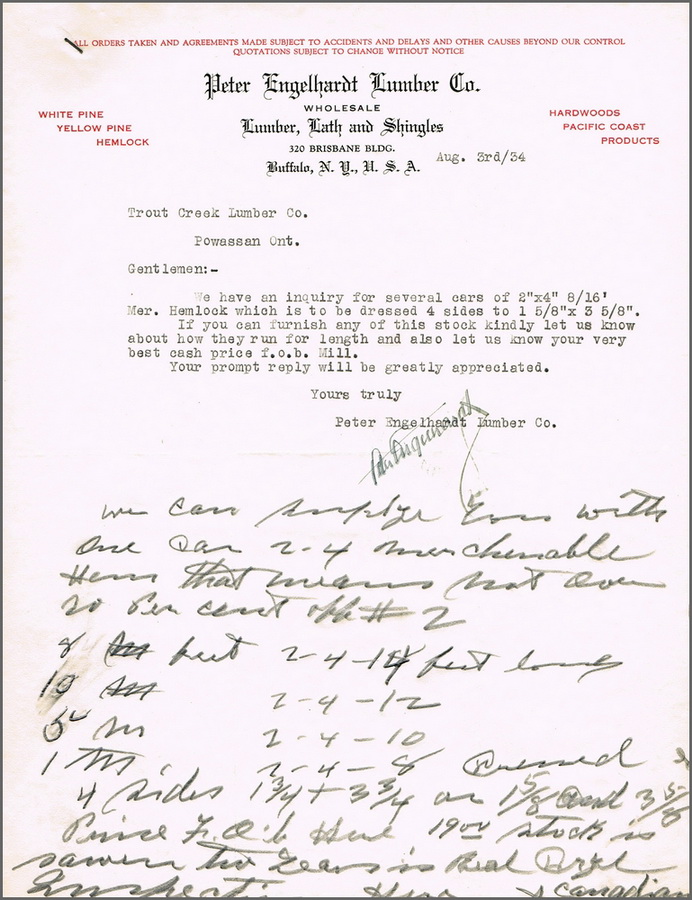 ALL ORDERS TAKEN AND AGREEMENTS MADE SUBJECT TO ACCIDENTS AND DELAYS AND OTHER CAUSES BEYOND OUR CONTROL
QUOTATIONS SUBJECT TO CHANGE WITHOUT NOTICE
Peter Engelhardt Lumber Co.
WHOLESALE
Lumber, Lath and Shingles
320 BRISBANE BLDG.
Buffalo, N. Y., U. S. A.
WHITE PINE
YELLOW PINE
HEMLOCK
HARDWOODS
PACIFIC COAST
PRODUCTS
Aug. 3rd/34
Trout Creek Lumber Co.
Powassan Ont.
Gentlemen:-
We have an inquiry for several cars of 2"x4" 8/16'
Mer. Hemlock which is to be dressed 4 sides to 1 5/8"x 3 5/8".
If you can furnish any of this stock kindly let us know
about how they run for length and also let us know your very
best cash price f.o.b. Mill.
Your prompt reply will be greatly appreciated.
Yours truly
Peter Engelhardt Lumber Co.
we can you with
one Car 2-4 merchenable
Hem that means not over
20 Per cent off # 2
8 feet 2-4-14 feet long
19 M 2-4-12
M 2-4-10
1 M 2-4-8 Dressed
4 sides 1 3/4 + 3 3/4 or 1 5/8 and 3 5/8
F.O.b Here 19 stock is
two years is
Here Canadian